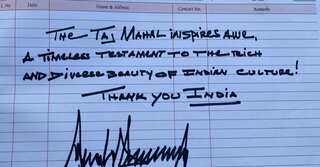 S. No Date Name & Address Contact No. Remarks
The Taj Mahal inspires awe,
a timeless testament to the rich
and diverse beauty of Indian culture!
Thank you India